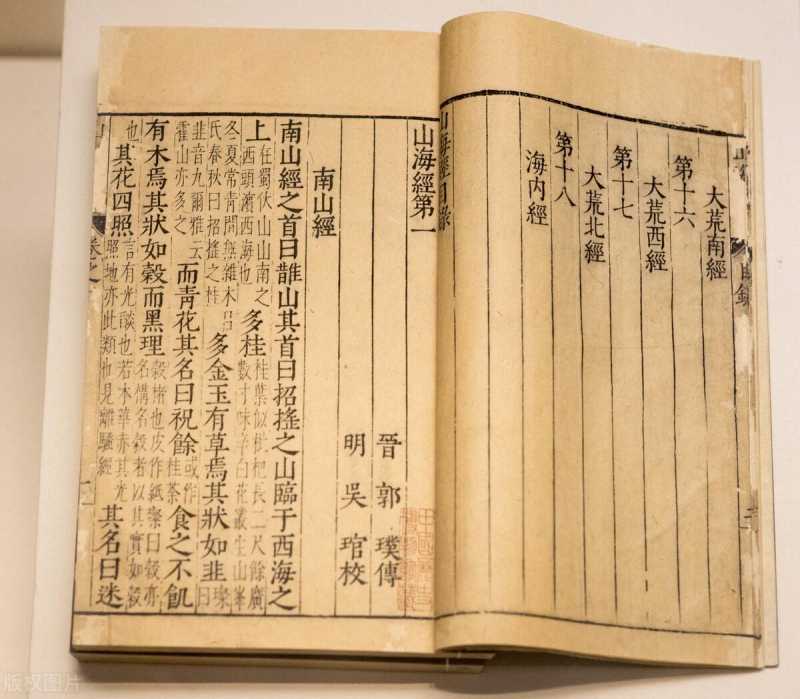 大荒南經
第十六
大荒西經
第十七
大荒北經
第十八
海內經
山海經目錄
山海經第一
晉 郭 璞傳
明 吳 琯校
南山經
南山經之首曰䧿山其首曰招搖之山臨于西海之
上在蜀伏山山南之西頭濱西海也多桂桂葉似枇杷長二尺餘廣數寸味辛白花叢生山峯
冬夏常青間無雜木呂氏春秋曰招搖之桂多金玉有草焉其狀如韭璨曰
韭音九爾雅云霍山亦多之而青花其名曰祝餘或作桂荼食之不飢
有木焉其狀如榖而黑理榖楮也皮作紙璨曰榖亦名構名榖者以其實如榖
也其花四照言有光燄也若木華赤其光照地亦此類也見離騷經其名曰迷
卷之一
版权图片